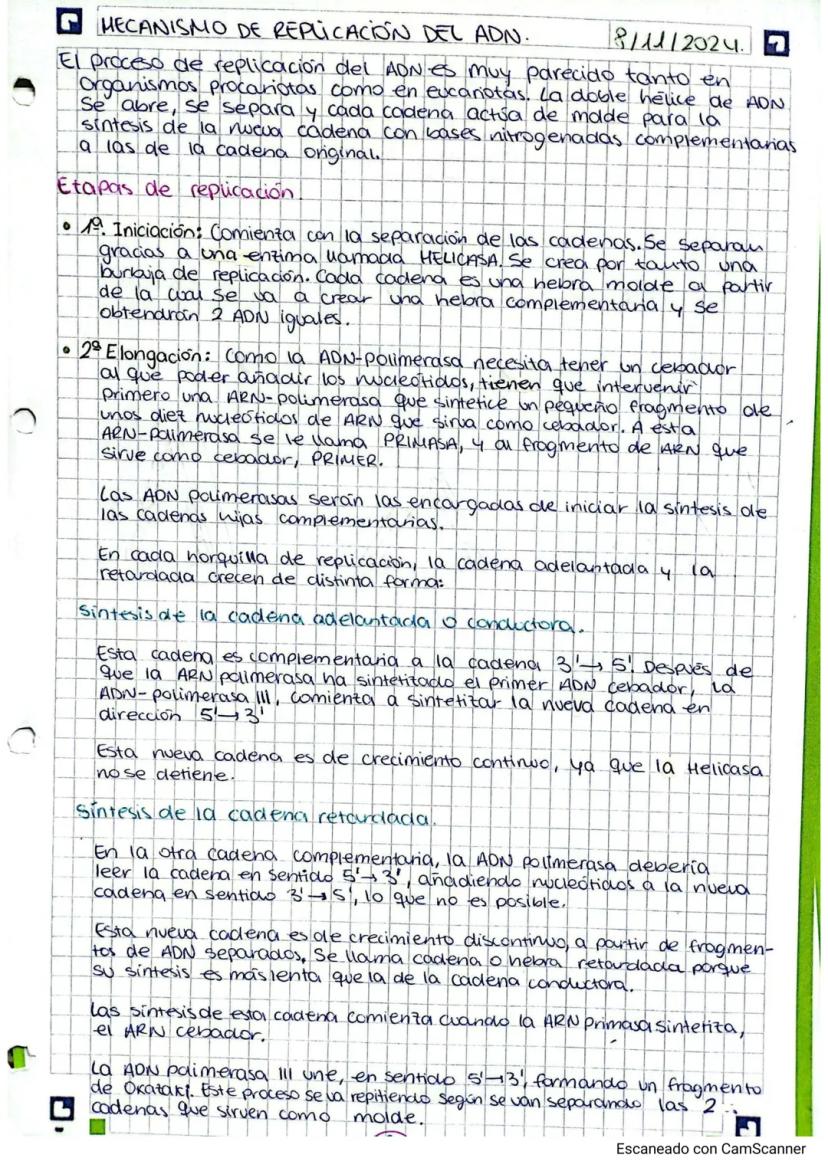 MECANISMO DE REPLICACIÓN DEL ADN.
8/11/2024.
El proceso de replicación del ADN es muy parecido tanto en
organismos procariotas como en eucariotas. La doble hélice de ADN
se abre, se separa y cada cadena actúa de molde para la
síntesis de la nueva cadena con bases nitrogenadas complementarias
a las de la cadena original.
Etapas de replicación
• 1º. Iniciación: Comienza con la separación de las cadenas. Se separan
gracias a una enzima llamada HELICASA. Se crea por tanto una
burbuja de replicación. Cada cadena es una hebra molde a partir
de la cual se va a crear una hebra complementaria y se
obtendrán 2 ADN iguales.
• 2º Elongación: Como la ADN-polimerasa necesita tener un cebador
al que poder añadir los nucleótidos, tienen que intervenir
primero una ARN-polimerasa que sintetice un pequeño fragmento de
unos diez nucleótidos de ARN que sirva como cebador. A esta
ARN-polimerasa se le llama PRIMASA, y al fragmento de ARN que
sirve como cebador, PRIMER.
Las ADN polimerasas serán las encargadas de iniciar la síntesis de
las cadenas hijas complementarias.
En cada horquilla de replicación, la cadena adelantada y la
retardada crecen de distinta forma:
Síntesis de la cadena adelantada o conductora.
Esta cadena es complementaria a la cadena 3'→5'. Después de
que la ARN polimerasa ha sintetizado el primer ADN cebador, la
ADN-polimerasa III, comienza a sintetizar la nueva cadena en
dirección 5'→3'
Esta nueva cadena es de crecimiento continuo, ya que la Helicasa
no se detiene.
Síntesis de la cadena retardada.
En la otra cadena complementaria, la ADN polimerasa debería
leer la cadena en sentido 5'→3', añadiendo nucleótidos a la nueva
cadena en sentido 3'→5', lo que no es posible.
Esta nueva cadena es de crecimiento discontinuo, a partir de fragmen-
tos de ADN separados. Se llama cadena o hebra retardada porque
su síntesis es más lenta que la de la cadena conductora.
Las síntesis de esta cadena comienza cuando la ARN primasa sintetiza,
el ARN cebador.
La ADN polimerasa III une, en sentido 5'→3', formando un fragmento
de Okazaki. Este proceso se va repitiendo según se van separando las 2
cadenas que sirven como molde.
Escaneado con CamScanner